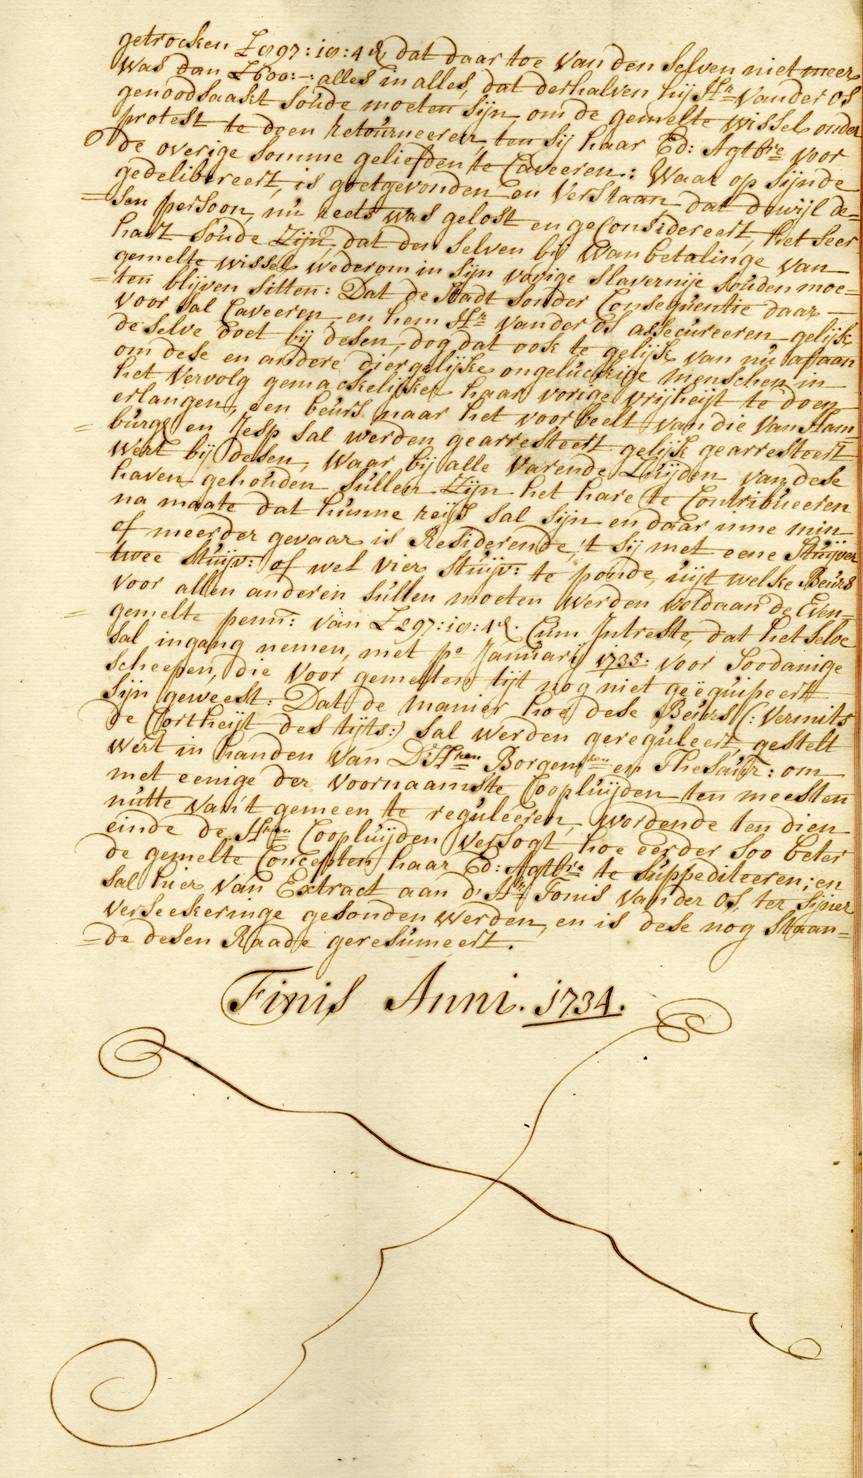 getrocken £897:10:4 ₰ dat daar toe van den selven niet meer
was dan £600:-: alles in alles, dat derhalven hij Hr. Vander Os
genoodsaakt soude moeten sijn, om de gemelte wissel onder
protest te doen retourneeren ten sij haar Ed: Agtbre voor
de overige somme geliefden te Caveeren: Waar op sijnde
gedelibereert, is goetgevonden en verstaan dat dewijl de=
=sen persoon, nu reets was gelost en geconsidereert, het seer
hart soude zijn, dat den selven bij wanbetalinge van
gemelte wissel wederom in sijn vorige slavernije souden moe=
=ten blijven sitten: Dat de Stadt sonder Consequentie daar
voor sal Caveeren, en hem Hr. Vander Os assecureeren gelijk
de selve doet bij desen, dog dat ook te gelijk van nu afaan
om dese en andere diergelijke ongeluckige menschen in
het vervolg gemackelijker haar vorige vrijheijt te doen
erlangen, een beurs naar het voorbeelt van die van Ham
=burg en Jesp sal werden gearresteert gelijk gearresteert
wert bij desen, Waar bij alle Varende Luijden van dese
haven gehouden sullen zijn het hare te Contribueeren
na maate dat hunne reijs sal sijn en daar inne min
of meerder gevaar is Residerende, 't sij met eene Stuijver
twee Stuijv: of wel vier Stuijv: te ponde, uijt welke Beurs
voor allen anderen sullen moeten werden voldaan de Even=
=gemelte penn: van £297:10:4 ₰. Cum Intreste, dat het selve
sal ingang nemen, met po. Januarij 1735: voor soodanige
scheepen, die voor gemelten tijt nog niet geëquipeert
sijn geweest: Dat de manier hoe dese Beurs (: vermits
de Cortheijt des tijts:) sal werden gereguleert, gestelt
wert in handen van D'Hren Borgemren en Thesaur: om
met eenige der voornaamste Coopluijden ten meesten
nutte van 't gemeen te reguleeren, wordende ten dien
einde de Hren Coopluijden versogt, hoe eerder soo beter
de gemelte Concepten haar Ed: Agtbre te suppediteeren; en
sal hier van Extract aan d'Hr Tonis Vander Os, ter sijner
verseekeringe gesonden werden, en is dese nog staan=
=de desen Raade geresumeert.
Finis Anni. 1734.